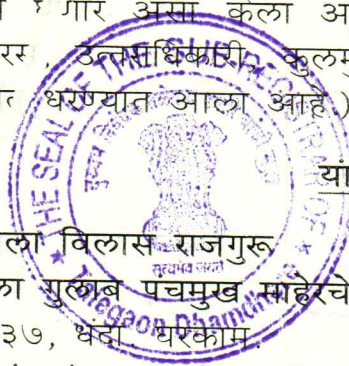 गार असा केला
उत्तराधिकारी, कुलमु
धरण्यात आला आहे)
यां
ला विलास राजगुरू
ला गुलाब पचमुख माहेरचे
३७, धंदा. घरकाम.
THE SEAL OF THE SUB REGISTRAR OF
सत्यमेव जयते
Talegaon Dhamdhere